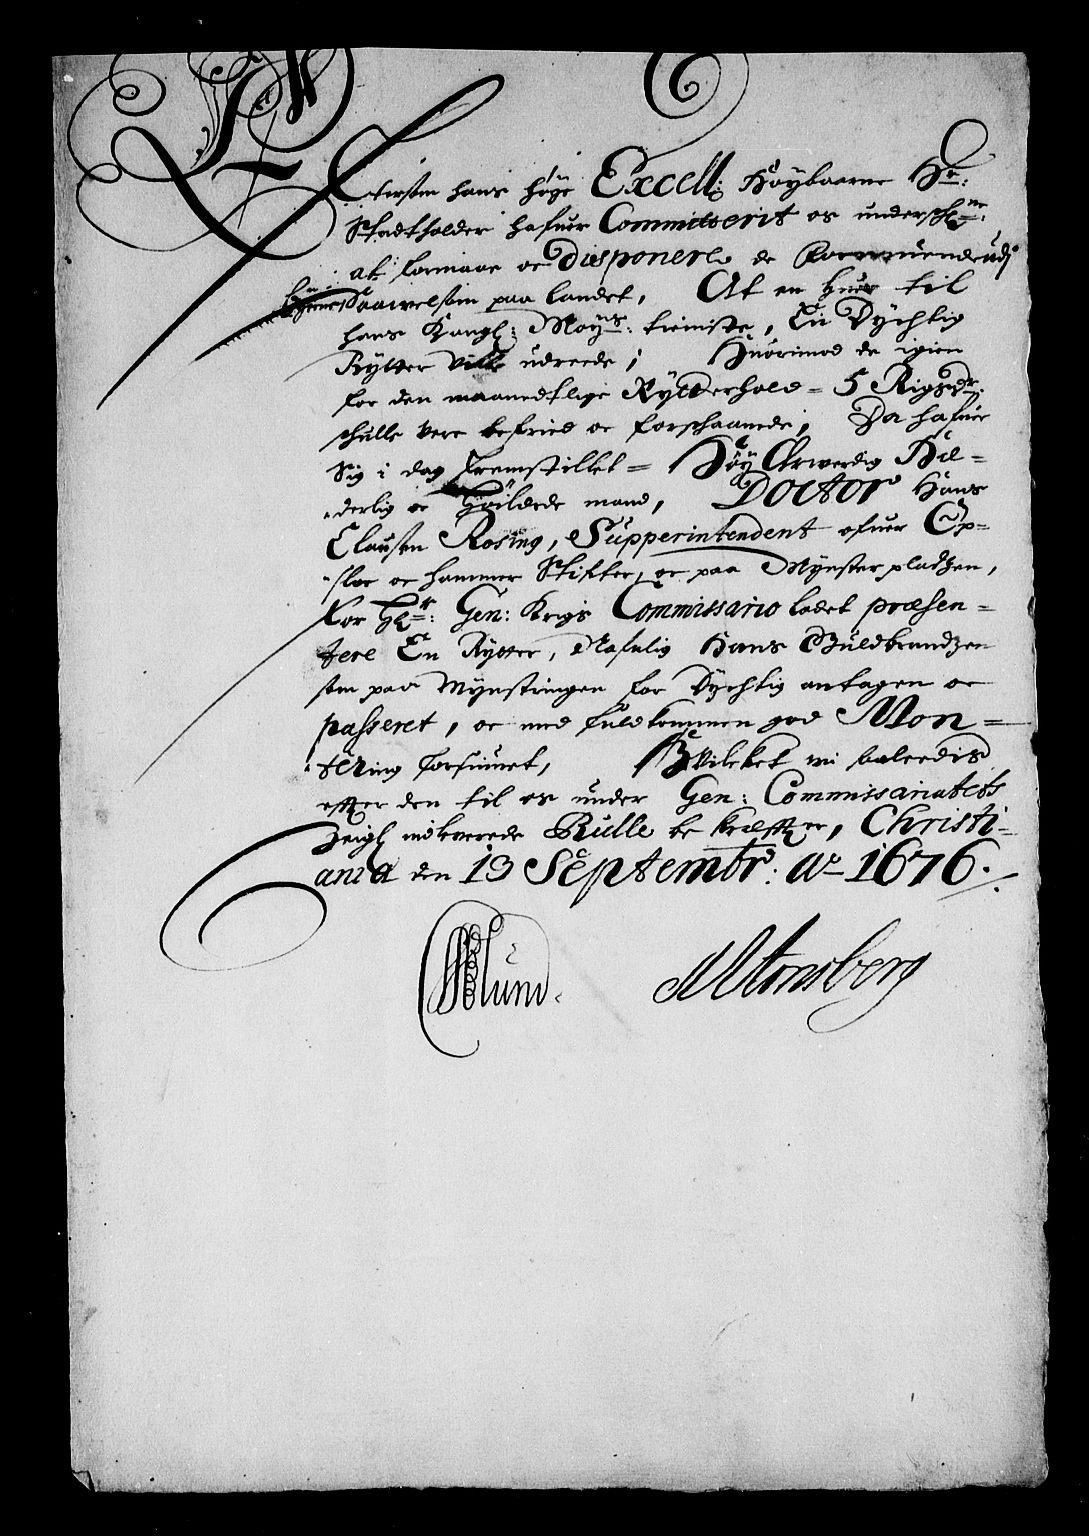 Eftersom hans høye Excell: Høybaarne Hr:
Stadtholder hafuer Committerit os underschne:
at formaae oc disponere de Formuende udj
Saawelsom paa landet, At en huer til
hans Kongl: Mayts: tieniste, En Dychtig
Rytter ville udreede; Huorimod de igien
for den maanedtlige Rytterhold = 5 Rigsdr.
schulle vere befried oc forschaanede; Da hafuer
Sig i dag fremstillet = Høy Ærwerdig Hæ=
derlig oc Høilærde mand, Doctor Hans
Clausen Rosing, Supperintendent ofuer Op=
sloe oc hammer Stifter, oc paa Mynster pladtzen,
for Hr: Gen: Krigs Commissario ladet præsen=
tere En Rytter, Nafnlig Hans Guldbrandtzen
som paa Mynstringen for Dychtig antagen oc
passeret, oc med fuldkommen god Mon=
tering forsiunet, Hvilcket wi saaledis
effter den til os under Gen: Commissariatets
Zeigl indleverede Rulle be kræffter, Christi=
ania den 13 Septembr: Ao 1676.
Lund.
Tonsberg